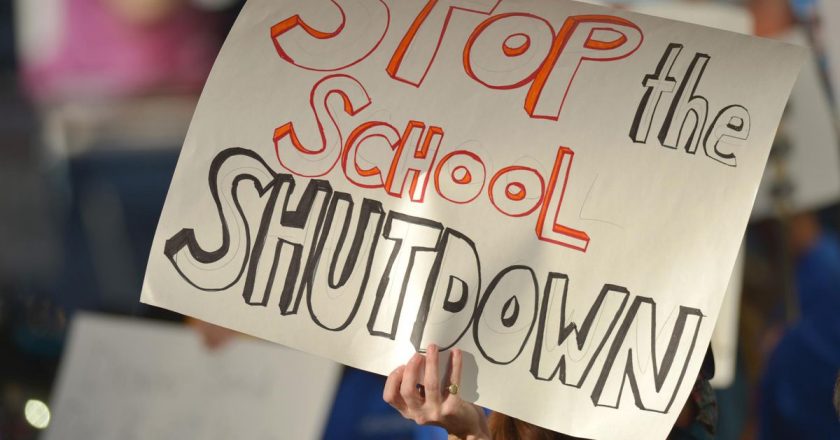 STOP the
SCHOOL
SHUTDOWN